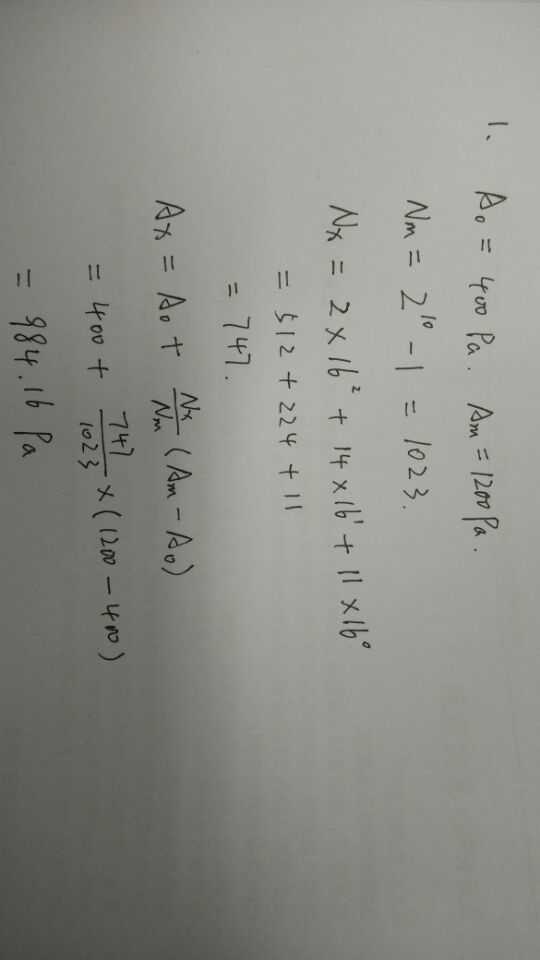 1. A₀ = 400 Pa. Am = 1200 Pa.
Nm = 2¹⁰ - 1 = 1023.
Nx = 2 × 16² + 14 × 16¹ + 11 × 16⁰
= 512 + 224 + 11
= 747.
Ax = A₀ + Nx/Nm (Am - A₀)
= 400 + 747/1023 × (1200 - 400)
= 984.16 Pa